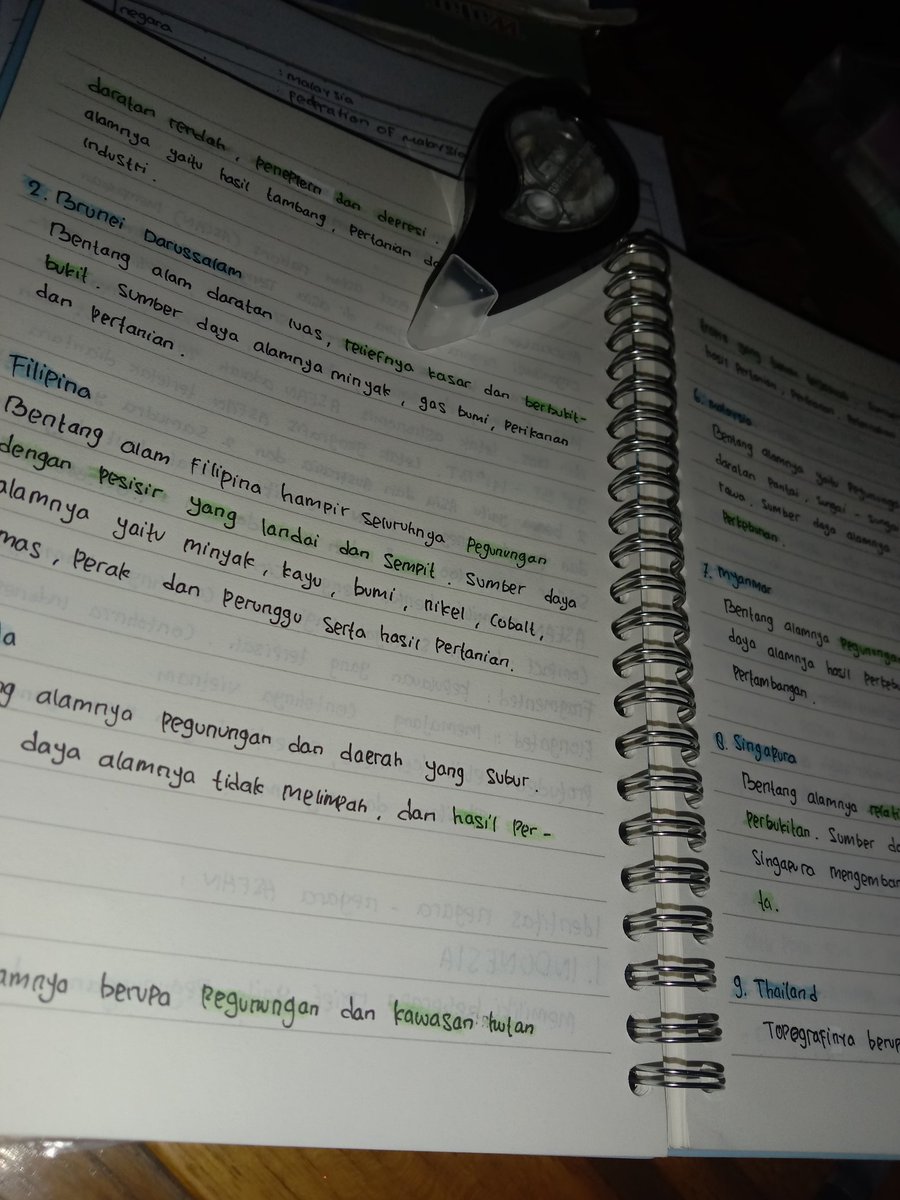 negara
: malaysia
: Federation of malaysia
daratan rendah, peneplem dan depresi.
alamnya yaitu hasil tambang, pertanian da
industri.
2. Brunei Darussalam
Bentang alam daratan luas, reliefnya kasar dan berbukit-
bukit. Sumber daya alamnya minyak, gas bumi, perikanan
dan pertanian.
Filipina
Bentang alam filipina hampir seluruhnya pegunungan
dengan pesisir yang landai dan sempit. Sumber daya
alamnya yaitu minyak, kayu, bumi, nikel, cobalt,
mas, perak dan perunggu serta hasil pertanian.
la
ng alamnya pegunungan dan daerah yang subur.
daya alamnya tidak melimpah, dan hasil per-
amnya berupa pegunungan dan kawasan hutan
hasil pertanian,
6. malaysia
Bentang alamnya yaitu pegununga
daratan pantai, sungai - sunga
rawa. Sumber daya alamnya
perkebunan.
7. Myanmar
Bentang alamnya pegununga
daya alamnya hasil perkebu
pertambangan.
8. Singapura
Bentang alamnya relati
perbukitan. Sumber da
Singapura mengemban
ta.
9. Thailand
Topografinya berup